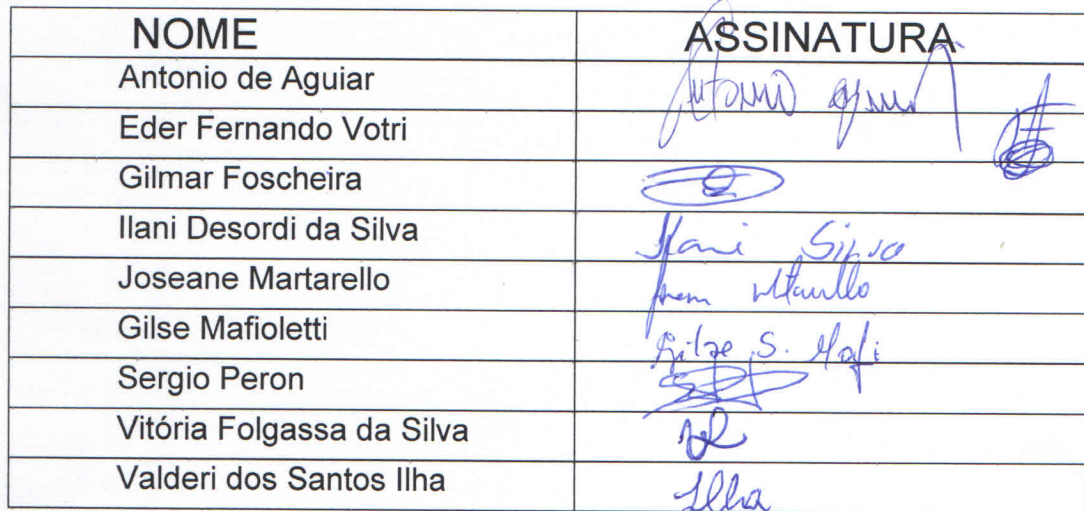 NOME ASSINATURA
Antonio de Aguiar Antonio
Eder Fernando Votri
Gilmar Foscheira
Ilani Desordi da Silva Ilani Silva
Joseane Martarello
Gilse Mafioletti Gilse S. Mafi
Sergio Peron
Vitória Folgassa da Silva
Valderi dos Santos Ilha Ilha